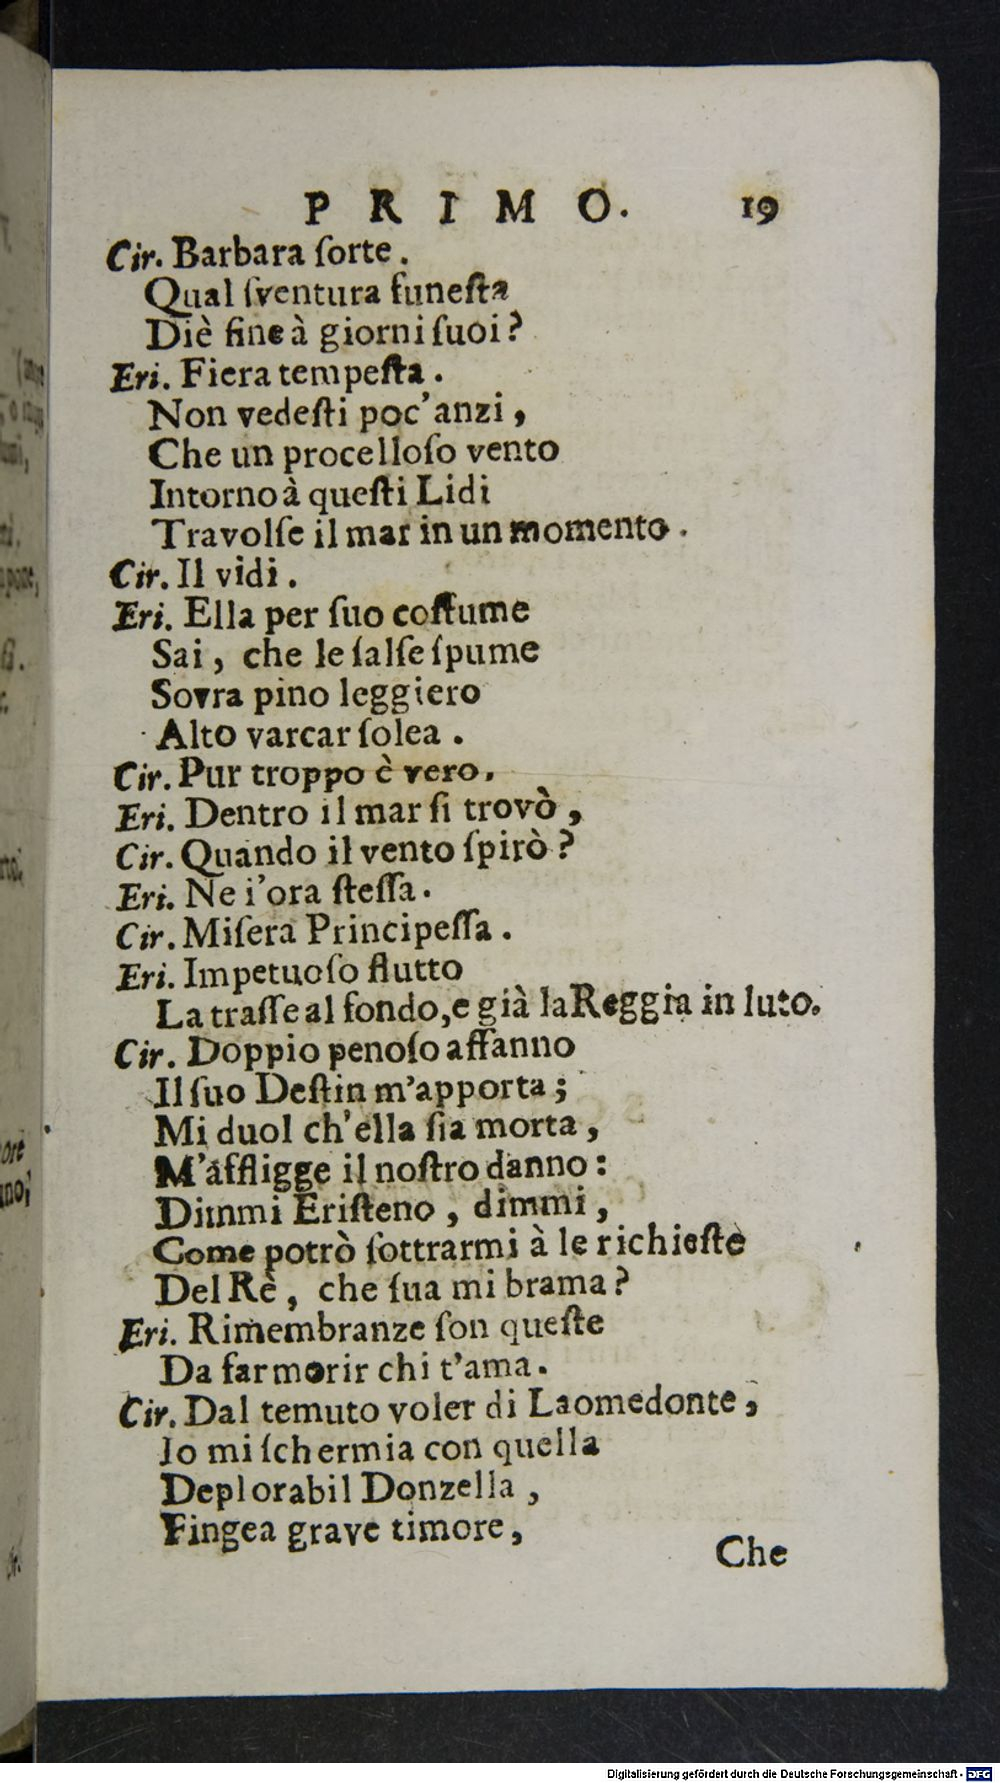 PRIMO. 19
Cir. Barbara ſorte.
Qual ſventura funeſta
Diè fine à giorni ſuoi?
Eri. Fiera tempeſta.
Non vedeſti poc'anzi,
Che un procelloſo vento
Intorno à queſti Lidi
Travolſe il mar in un momento.
Cir. Il vidi.
Eri. Ella per ſuo coſtume
Sai, che le ſalſe ſpume
Sovra pino leggiero
Alto varcar ſolea.
Cir. Pur troppo è vero.
Eri. Dentro il mar ſi trovò,
Cir. Quando il vento ſpirò?
Eri. Ne i'ora ſteſſa.
Cir. Miſera Principeſſa.
Eri. Impetuoſo flutto
La traſſe al fondo, e già la Reggia in luto.
Cir. Doppio penoſo affanno
Il ſuo Deſtin m'apporta;
Mi duol ch'ella ſia morta,
M'affligge il noſtro danno:
Dimmi Eriſteno, dimmi,
Come potrò ſottrarmi à le richieſte
Del Rè, che ſua mi brama?
Eri. Rimembranze ſon queſte
Da far morir chi t'ama.
Cir. Dal temuto voler di Laomedonte,
Io mi ſchermia con quella
Deplorabil Donzella,
Fingea grave timore,
Che
Digitalisierung gefördert durch die Deutsche Forschungsgemeinschaft - DFG